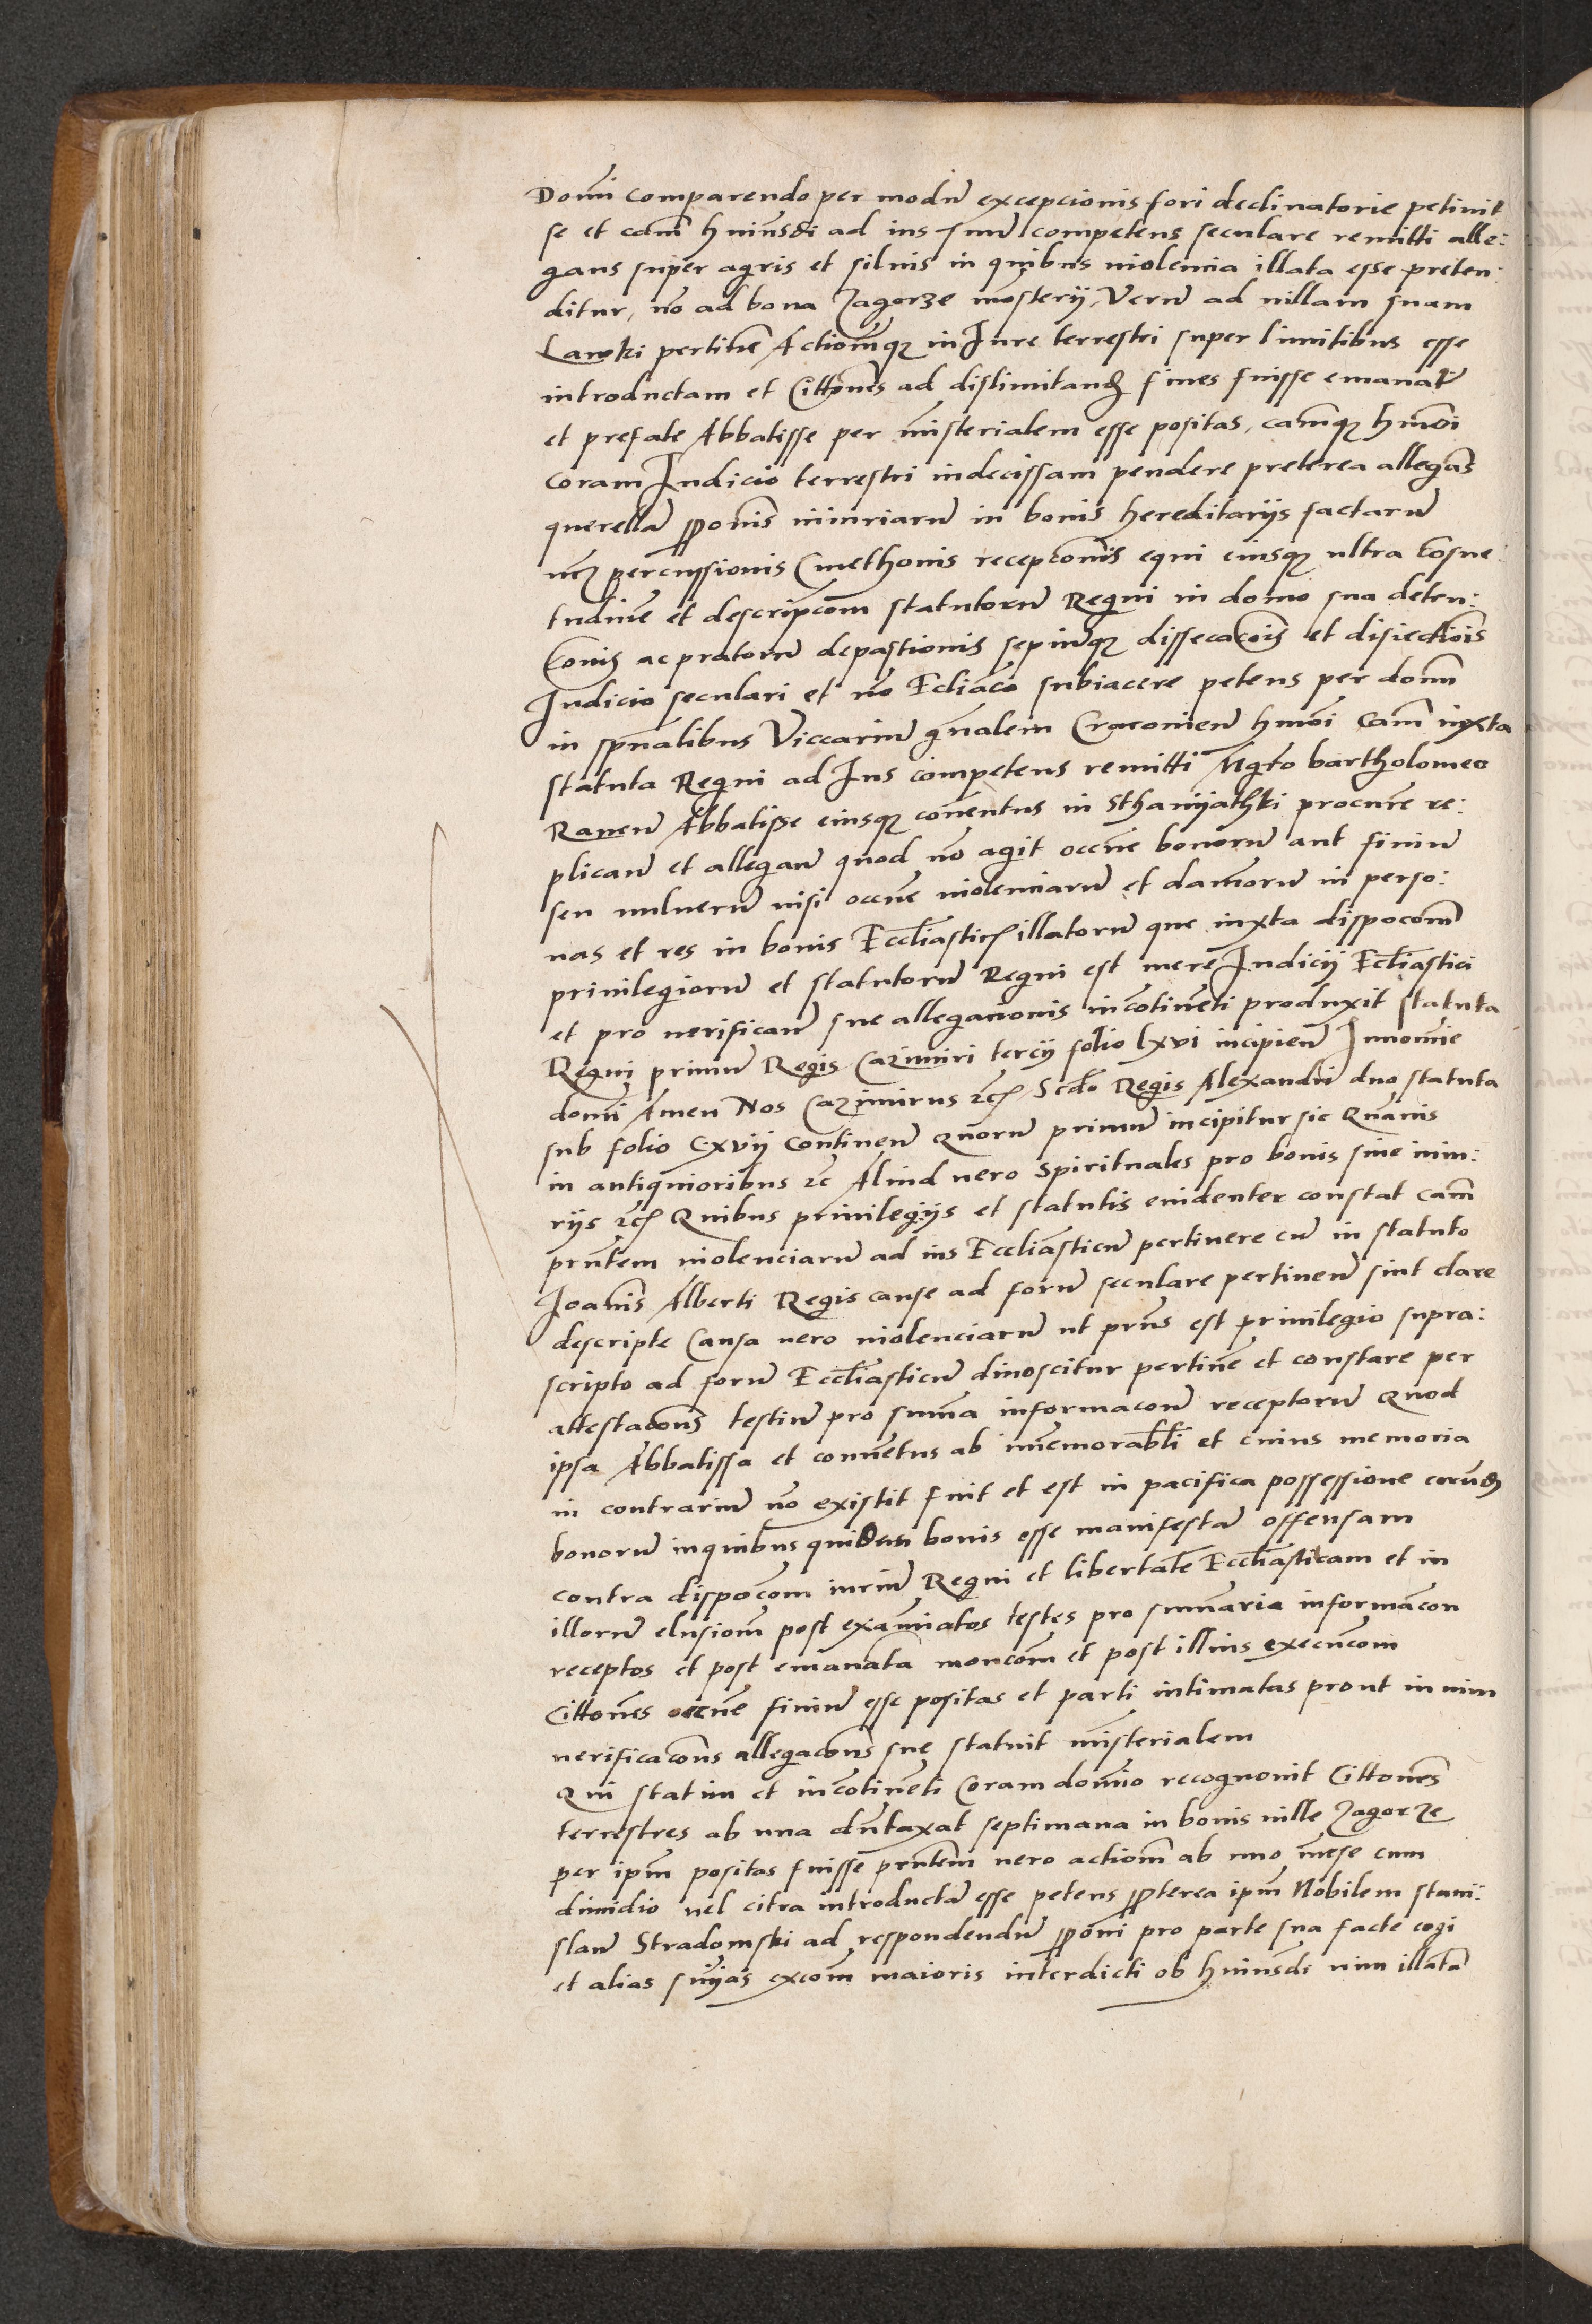 Domi comparendo per modu excepcionis fori declinatorie petiuit
se et cam huiusdi ad ius suu competens seculare remitti alle:
gans super agris et siluis in quibus uiolencia illata esse preten:
ditur, no ad bona Zagorze mosterij, Veru ad uillam suam
Lawki pertine Actiomqz in Jure terrestri super limitibus esse
introductam et Cittones ad dislimitand fines fuisse emanat
et prefate Abbatisse per misterialem esse positas, camqz hmoi
coram Judicio terrestri indecissam pendere preterea allegas
querella pponis iniuriaru in bonis hereditarijs factaru
ucz percussionis Cmethonis recepconis equi eiusqz ultra cosue:
tudine et descripcom statutoru Regni in domo sua deten:
conis ac pratoru depastionis sepiuqz dissecacois et disiectiois
Judicio seculari et no Ecliaco subiacere petens per domi
in spualibus Viccariu gnalem Cracouien hmoi Cam iuxta
statuta Regni ad Jus competens remitti Mgro bartholomeo
Rawen Abbatisse eiusqz conentus in Sthanijathki procure re:
plican et allegan quod no agit occne bonoru aut finiu
seu uulueru nisi occne uiolenciaru et damoru in perso:
nas et res in bonis Eccliasticis illatoru que iuxta dispocom
priuilegioru et statutoru Regni est mere Judicij Ecliastici
et pro uerifican sue allegacionis incotineti produxit statuta
Regni primu Regis Cazimiri tercij folio lxvi incipien Innomie
domi Amen Nos Cazimirus etc Scdo Regis Alexandri duo statuta
sub folio Cxvij continen Quoru primu incipitur sic Quauis
in antiquioribus etc Aliud uero Spirituales pro bonis siue iniu:
rijs etc Quibus priuilegijs et statutis euidenter constat cam
prntem uiolenciaru ad ius Eccliasticu pertinere cu in statuto
Joanis Alberti Regis cause ad foru seculare pertinen sint clare
descripte Causa uero uiolenciaru ut prns est priuilegio supra:
scripto ad foru Eccliasticu dinoscitur pertine et constare per
attestacons testiu pro suma informacon receptoru Quod
ipsa Abbatissa et conuetus ab imemorabli et cuius memoria
in contrariu no existit fuit et est in pacifica possessione eorund
bonoru inquibus quidem bonis esse manifesta offensam
contra dispocom iuriu Regni et libertate Eccliasticam et in
illoru elusiom post examiatos testes pro sumaria informacon
receptos et post emanata moncom et post illius execucom
Cittones occne finiu esse positas et parti intimatas prout in uim
uerificacons allegacons sue statuit misterialem
Qui statim et incotineti Coram domio recognouit Cittones
terrestres ab una dutaxat septimana in bonis uille Zagorze
per ipm positas fuisse prntem uero actiom ab uno mese cum
dimidio uel citra introducta esse petens ppterea ipm Nobilem stani:
slau Stradomski ad respondendu pponi pro parte sua facte cogi
et alias suijas excom maioris interdicti ob huiusdi uim illata